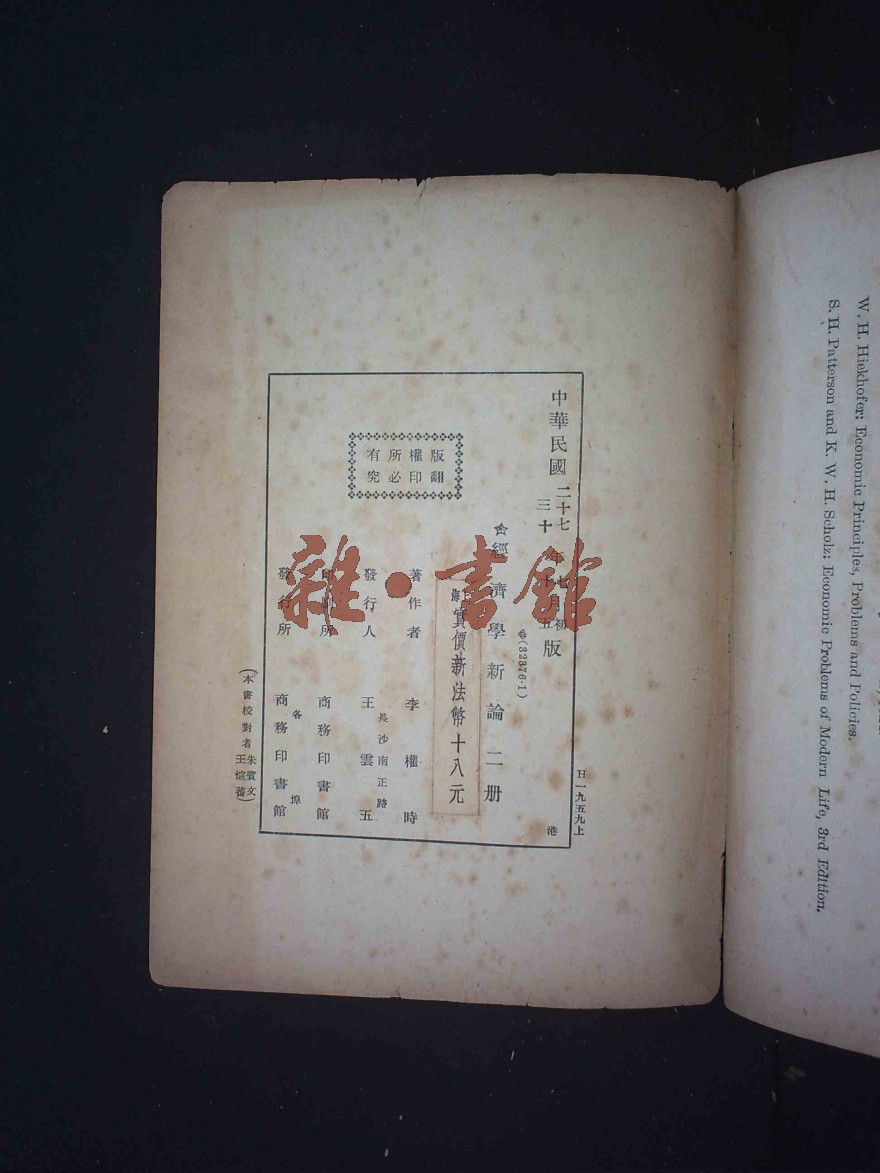 中華民國二十七年七月初版
三十年十五版
(32376·1)
經濟學新論二册
港
實價新法幣十八元
著作者 李權時
長沙南正路
發行人 王雲五
印刷所 商務印書館
各埠
發行所 商務印書館
版權所有
翻印必究
日一九五九上
(本書校對者朱賓文
王煊蕃)
雜·書館
W. H. Hiekhofer: Economic Principles, Problems and Policies.
S. H. Patterson and K. W. H. Scholz: Economic Problems of Modern Life, 3rd Edition.